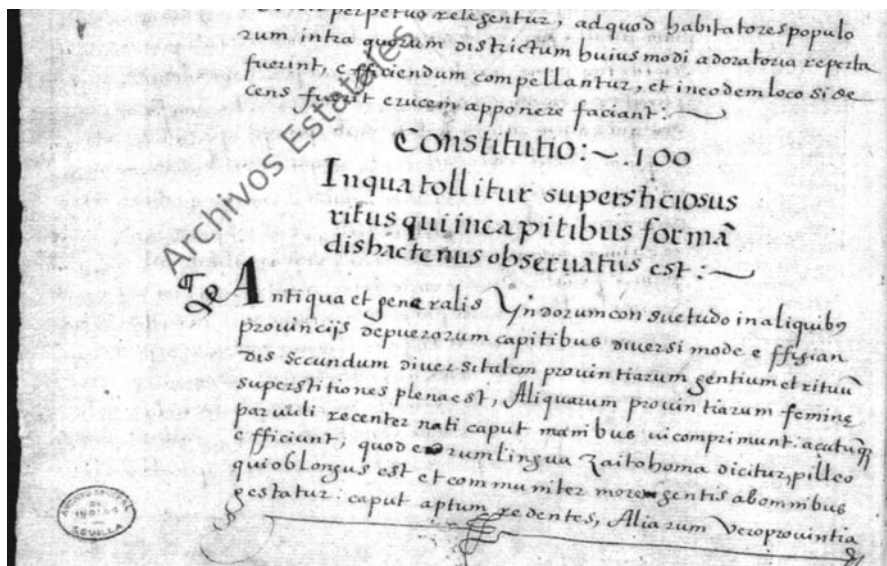 perpetuo relegentur, ad quod habitatores populo
rum intra quorum districtum huius modi adoratoria reperta
fuerint, efficiendum compellantur, et in eodem loco si de
cens fuerit crucem apponere faciant:~
Constitutio:~.100
In qua tollitur supersticiosus
ritus qui in capitibus formā
dis hactenus observatus est:~
Antiqua et generalis Yndorum consuetudo in aliquibus
provincijs de puerorum capitibus diversi mode effigian
dis secundum diversitatem provintiarum gentium et rituū
superstitiones plena est, Aliquarum provintiarum feminę
parvuli recenter nati caput manibus vi comprimunt: acutūq;
efficiunt, quod eorum lingua Zaitohoma dicitur, pilleo
qui oblongus est et communiter more gentis ab omnibus
gestatur: caput aptum redentes, Aliarum vero provintia
Archivos Estatales
ARCHIVO GENERAL
DE
INDIAS
SEVILLA